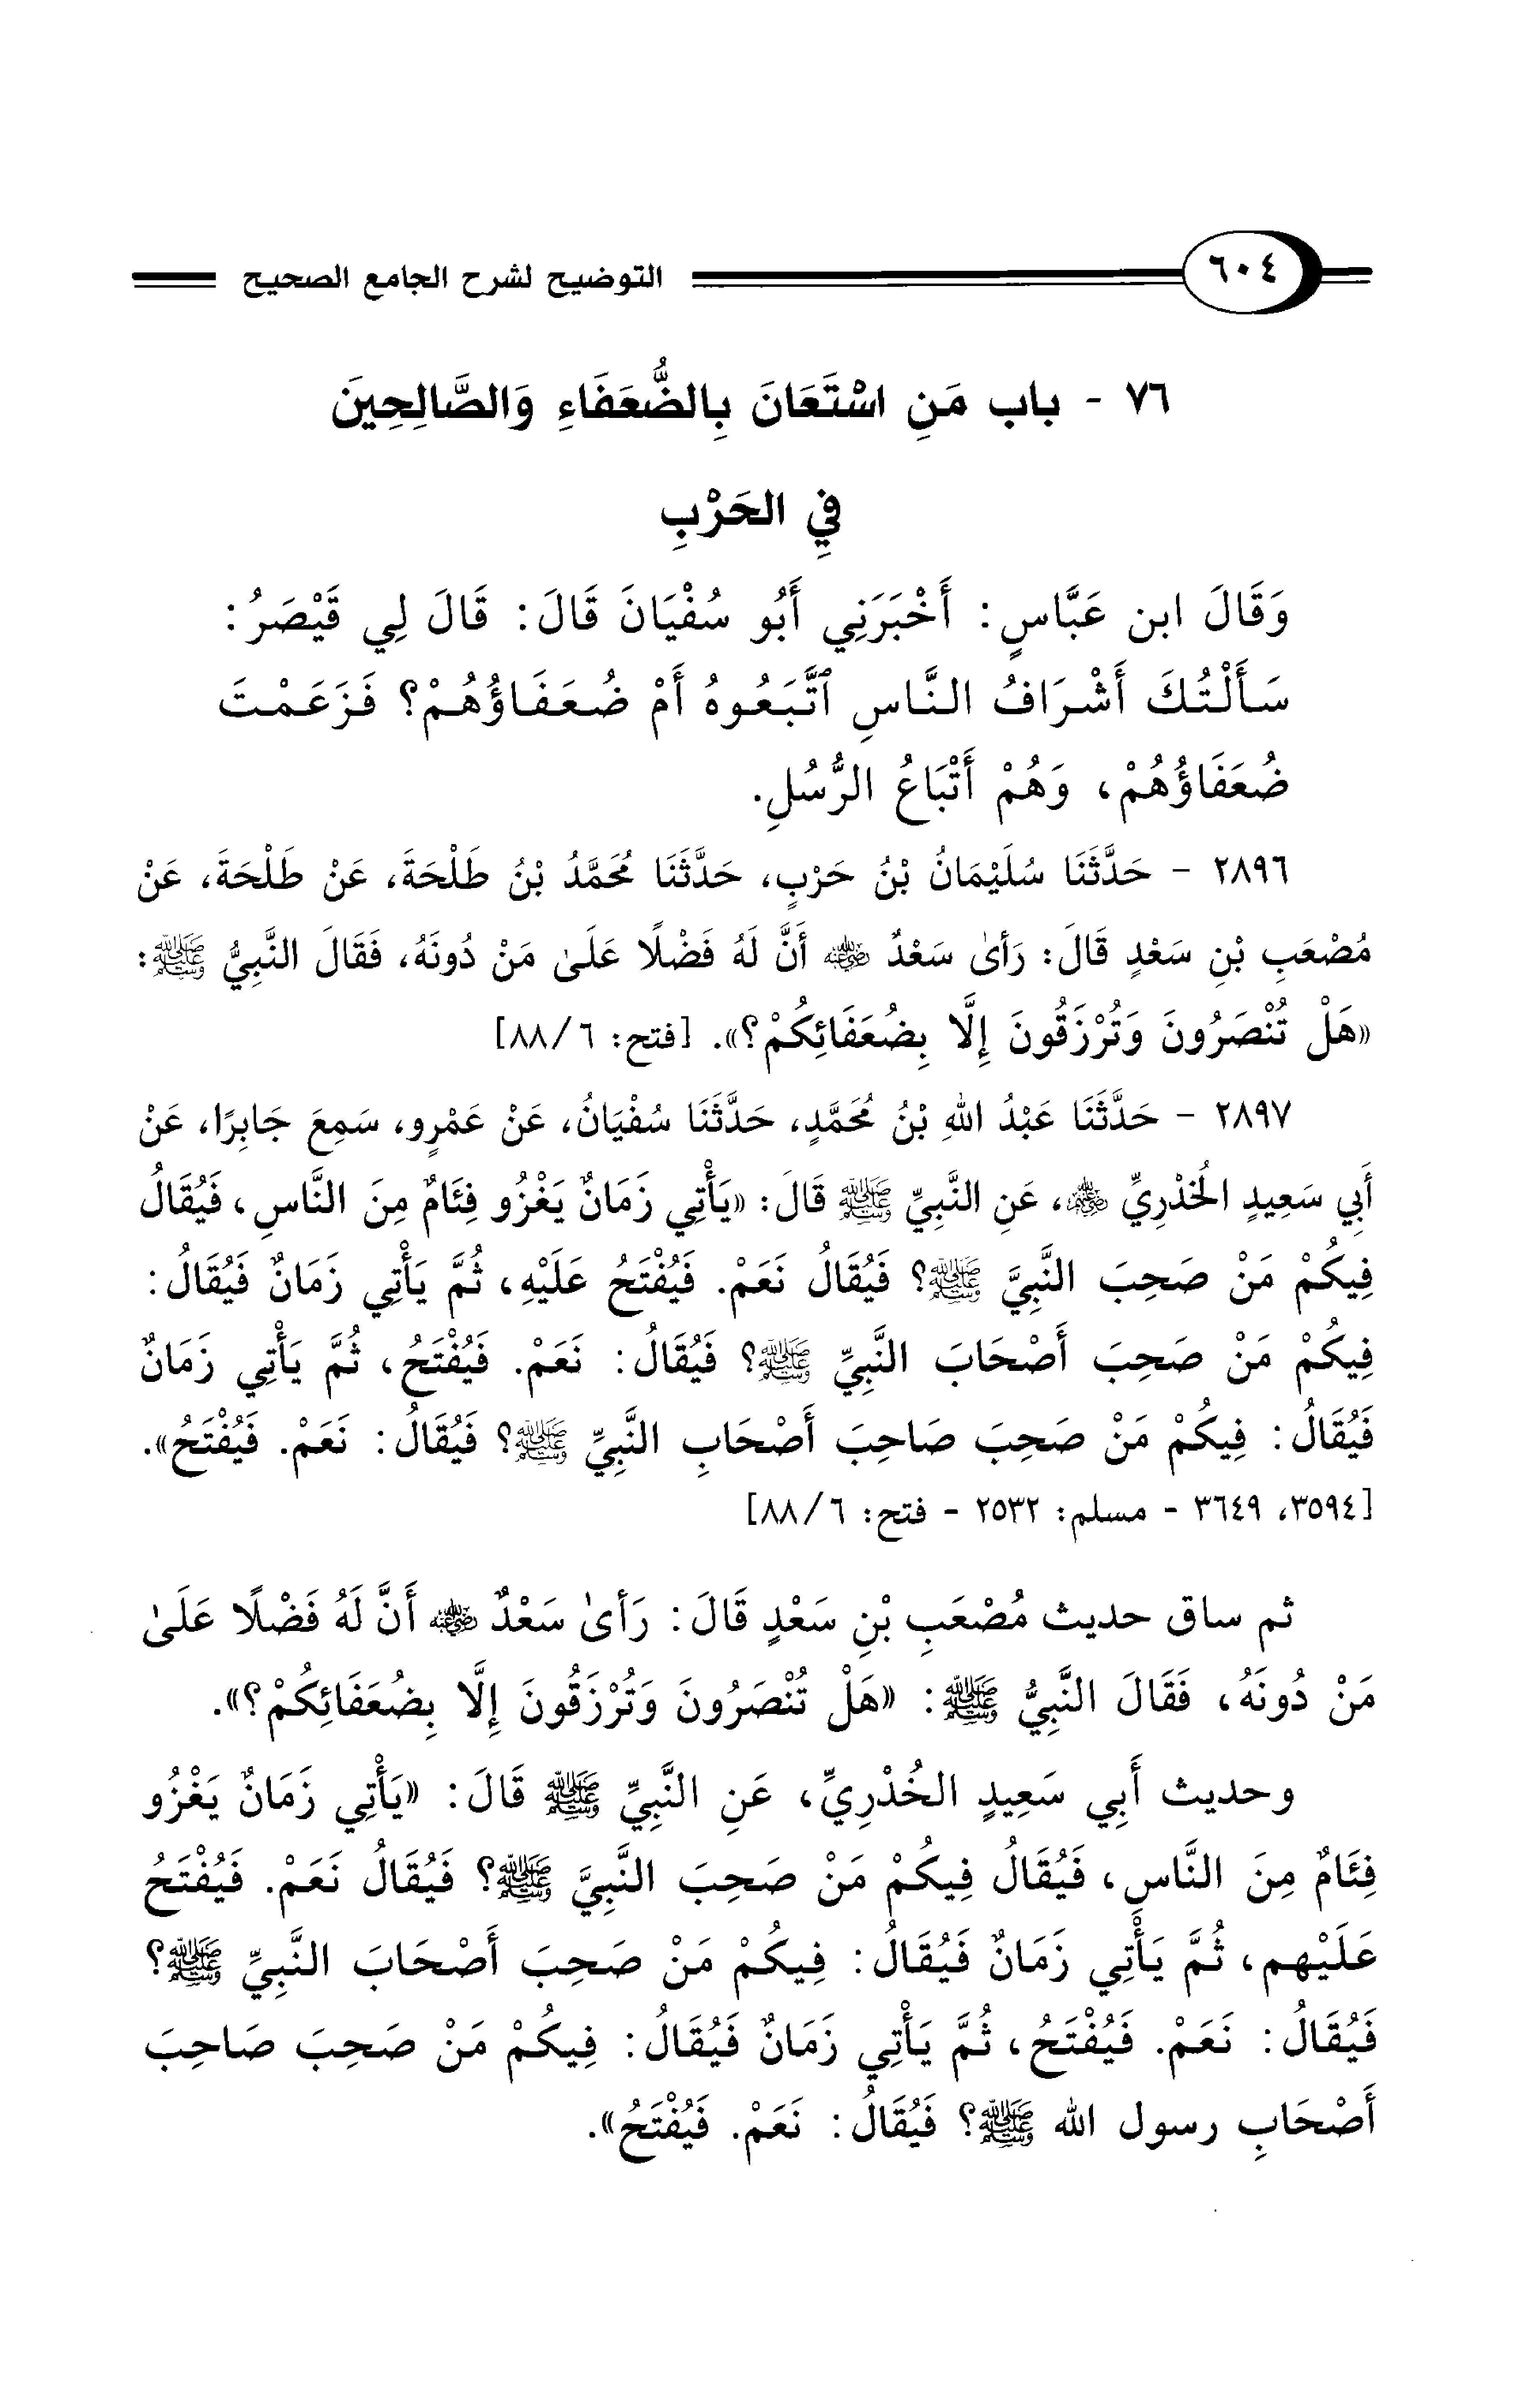 ٦٠٤ التوضيح لشرح الجامع الصحيح
٧٦ - باب مَنِ اسْتَعَانَ بِالضُّعَفَاءِ وَالصَّالِحِينَ
فِي الحَرْبِ
وَقَالَ ابن عَبَّاسٍ: أَخْبَرَنِي أَبُو سُفْيَانَ قَالَ: قَالَ لِي قَيْصَرُ:
سَأَلْتُكَ أَشْرَافُ النَّاسِ ٱتَّبَعُوهُ أَمْ ضُعَفَاؤُهُمْ؟ فَزَعَمْتَ
ضُعَفَاؤُهُمْ، وَهُمْ أَتْبَاعُ الرُّسُلِ.
٢٨٩٦ - حَدَّثَنَا سُلَيْمَانُ بْنُ حَرْبٍ، حَدَّثَنَا مُحَمَّدُ بْنُ طَلْحَةَ، عَنْ طَلْحَةَ، عَنْ
مُصْعَبِ بْنِ سَعْدٍ قَالَ: رَأىٰ سَعْدٌ رضي الله عنه أَنَّ لَهُ فَضْلًا عَلَىٰ مَنْ دُونَهُ، فَقَالَ النَّبِيُّ ﷺ:
«هَلْ تُنْصَرُونَ وَتُرْزَقُونَ إِلَّا بِضُعَفَائِكُمْ؟». [فتح: ٦/ ٨٨]
٢٨٩٧ - حَدَّثَنَا عَبْدُ اللهِ بْنُ مُحَمَّدٍ، حَدَّثَنَا سُفْيَانُ، عَنْ عَمْرٍو، سَمِعَ جَابِرًا، عَنْ
أَبِي سَعِيدٍ الخُدْرِيِّ رضي الله عنهم، عَنِ النَّبِيِّ ﷺ قَالَ: «يَأْتِي زَمَانٌ يَغْزُو فِئَامٌ مِنَ النَّاسِ، فَيُقَالُ
فِيكُمْ مَنْ صَحِبَ النَّبِيَّ ﷺ؟ فَيُقَالُ نَعَمْ. فَيُفْتَحُ عَلَيْهِ، ثُمَّ يَأْتِي زَمَانٌ فَيُقَالُ:
فِيكُمْ مَنْ صَحِبَ أَصْحَابَ النَّبِيِّ ﷺ؟ فَيُقَالُ: نَعَمْ. فَيُفْتَحُ، ثُمَّ يَأْتِي زَمَانٌ
فَيُقَالُ: فِيكُمْ مَنْ صَحِبَ صَاحِبَ أَصْحَابِ النَّبِيِّ ﷺ؟ فَيُقَالُ: نَعَمْ. فَيُفْتَحُ».
[٣٥٩٤، ٣٦٤٩ - مسلم: ٢٥٣٢ - فتح: ٦/ ٨٨]
ثم ساق حديث مُصْعَبِ بْنِ سَعْدٍ قَالَ: رَأىٰ سَعْدٌ رضي الله عنه أَنَّ لَهُ فَضْلًا عَلَىٰ
مَنْ دُونَهُ، فَقَالَ النَّبِيُّ ﷺ: «هَلْ تُنْصَرُونَ وَتُرْزَقُونَ إِلَّا بِضُعَفَائِكُمْ؟».
وحديث أَبِي سَعِيدٍ الخُدْرِيِّ، عَنِ النَّبِيِّ ﷺ قَالَ: «يَأْتِي زَمَانٌ يَغْزُو
فِئَامٌ مِنَ النَّاسِ، فَيُقَالُ فِيكُمْ مَنْ صَحِبَ النَّبِيَّ ﷺ؟ فَيُقَالُ نَعَمْ. فَيُفْتَحُ
عَلَيْهِم، ثُمَّ يَأْتِي زَمَانٌ فَيُقَالُ: فِيكُمْ مَنْ صَحِبَ أَصْحَابَ النَّبِيِّ ﷺ؟
فَيُقَالُ: نَعَمْ. فَيُفْتَحُ، ثُمَّ يَأْتِي زَمَانٌ فَيُقَالُ: فِيكُمْ مَنْ صَحِبَ صَاحِبَ
أَصْحَابِ رسول الله ﷺ؟ فَيُقَالُ: نَعَمْ. فَيُفْتَحُ».